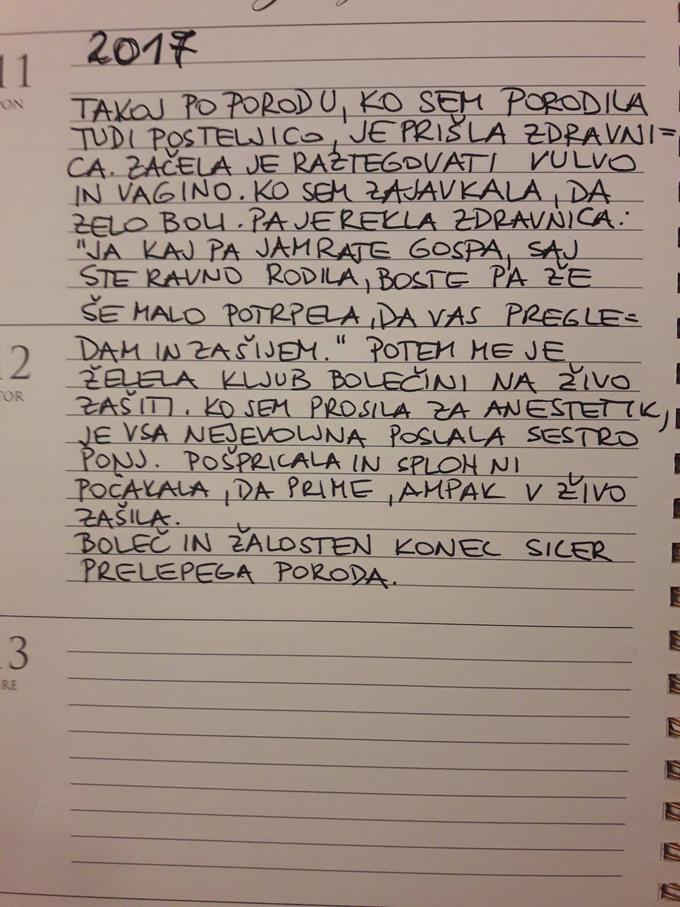 2017
11
PON
TAKOJ PO PORODU, KO SEM PORODILA
TUDI POSTELJICO, JE PRIŠLA ZDRAVNI=
CA. ZAČELA JE RAZTEGOVATI VULVO
IN VAGINO. KO SEM ZAJAVKALA, DA
ZELO BOLI. PA JE REKLA ZDRAVNICA:
"JA KAJ PA JAMRATE GOSPA, SAJ
STE RAVNO RODILA, BOSTE PA ŽE
ŠE MALO POTRPELA, DA VAS PREGLE=
12
TOR
DAM IN ZAŠIJEM." POTEM ME JE
ŽELELA KLJUB BOLEČINI NA ŽIVO
ZAŠITI. KO SEM PROSILA ZA ANESTETIK,
JE VSA NEJEVOLJNA POSLALA SESTRO
PONJ. POŠPRICALA IN SPLOH NI
POČAKALA, DA PRIME, AMPAK V ŽIVO
ZAŠILA.
BOLEČ IN ŽALOSTEN KONEC SICER
PRELEPEGA PORODA.
13
SRE